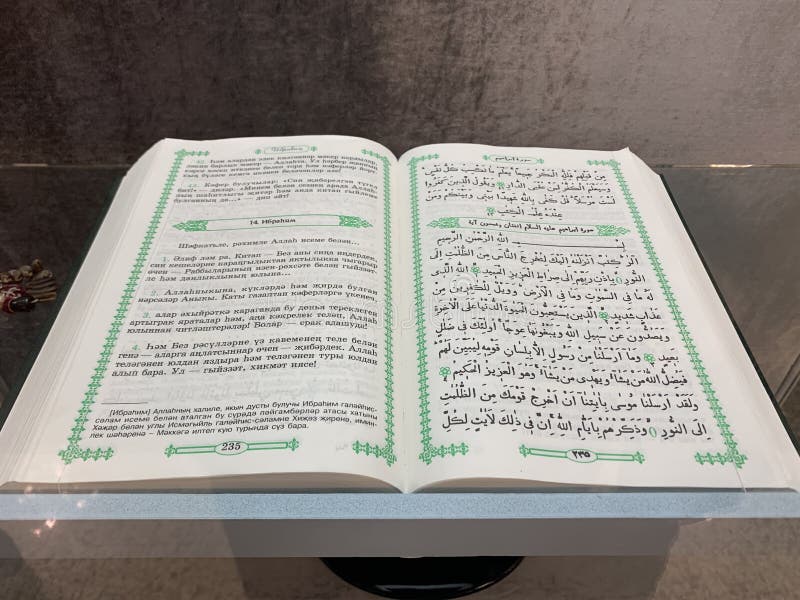 Ибраһим
42. Һәм алардан элек килгәннәр мәкер кордылар,
43. Кәфер булучылар: «Син җибәрелгән түгел
— диләр. «Минем белән сезнең арада Аллаһ
14. Ибраһим
Шәфкатьле, рәхимле Аллаһ исеме белән...
1. Әлиф ләм ра. Китап — Без аны сиңа иңдердек,
син кешеләрне караңгылыктан яктылыкка чыгарыр
өчен — Раббыларының изен-рөхсәте белән гыйззәт-
ле һәм данлыклының юлына...
2. Аллаһныкына, күкләрдә һәм җирдә булган
нәрсәләр Аныкы. Каты газаптан кәферләргә үкенеч,
3. алар ахыйрәткә караганда бу дөнья тереклеген
артыграк яраталар һәм, аңа кәкрелек теләп, Аллаһ
юлыннан читләштерәләр! Болар — ерак адашуда!
4. Һәм Без рәсүлләрне үз кавеменең теле белән
генә — аларга аңлатсыннар өчен — җибәрдек. Аллаһ
теләгәнен юлдан яздыра һәм теләгәнен туры юлдан
алып бара. Ул — гыйззәт, хикмәт иясе!
[Ибраһим] Аллаһның халиле, якын дусты булучы Ибраһим галәйһис-
сәлам исеме белән аталган бу сүрәдә пәйгамбәрләр атасы хатыны
Һаҗәр белән углы Исмәгыйль галәйһис-сәламне Хиҗаз җиренә, имин-
лек шәһәренә — Мәккәгә илтеп кую турында сүз бара.
235
سورة ابراهيم
مِنْ قَبْلِهِمْ فَلِلَّهِ الْمَكْرُ جَمِيعًا يَعْلَمُ مَا تَكْسِبُ كُلُّ نَفْسٍ
وَسَيَعْلَمُ الْكُفَّارُ لِمَنْ عُقْبَى الدَّارِ وَيَقُولُ الَّذِينَ كَفَرُوا
لَسْتَ مُرْسَلًا قُلْ كَفَى بِاللَّهِ شَهِيدًا بَيْنِي وَبَيْنَكُمْ وَمَنْ
عِنْدَهُ عِلْمُ الْكِتَابِ
سورة ابراهيم عليه السلام اثنتان وخمسون آية
بِسْمِ اللَّهِ الرَّحْمَنِ الرَّحِيمِ
الٓرٰ كِتَابٌ أَنْزَلْنَاهُ إِلَيْكَ لِتُخْرِجَ النَّاسَ مِنَ الظُّلُمَاتِ إِلَى
النُّورِ بِإِذْنِ رَبِّهِمْ إِلَى صِرَاطِ الْعَزِيزِ الْحَمِيدِ اللَّهِ الَّذِي
لَهُ مَا فِي السَّمٰوَاتِ وَمَا فِي الْأَرْضِ وَوَيْلٌ لِلْكَافِرِينَ مِنْ
عَذَابٍ شَدِيدٍ الَّذِينَ يَسْتَحِبُّونَ الْحَيٰوةَ الدُّنْيَا عَلَى الْآخِرَةِ
وَيَصُدُّونَ عَنْ سَبِيلِ اللَّهِ وَيَبْغُونَهَا عِوَجًا أُولٰئِكَ فِي ضَلَالٍ
بَعِيدٍ وَمَا أَرْسَلْنَا مِنْ رَسُولٍ إِلَّا بِلِسَانِ قَوْمِهِ لِيُبَيِّنَ لَهُمْ
فَيُضِلُّ اللَّهُ مَنْ يَشَاءُ وَيَهْدِي مَنْ يَشَاءُ وَهُوَ الْعَزِيزُ الْحَكِيمُ
وَلَقَدْ أَرْسَلْنَا مُوسَى بِآيَاتِنَا أَنْ أَخْرِجْ قَوْمَكَ مِنَ الظُّلُمَاتِ
إِلَى النُّورِ وَذَكِّرْهُمْ بِأَيَّامِ اللَّهِ إِنَّ فِي ذٰلِكَ لَآيَاتٍ لِكُلِّ
٢٣٥